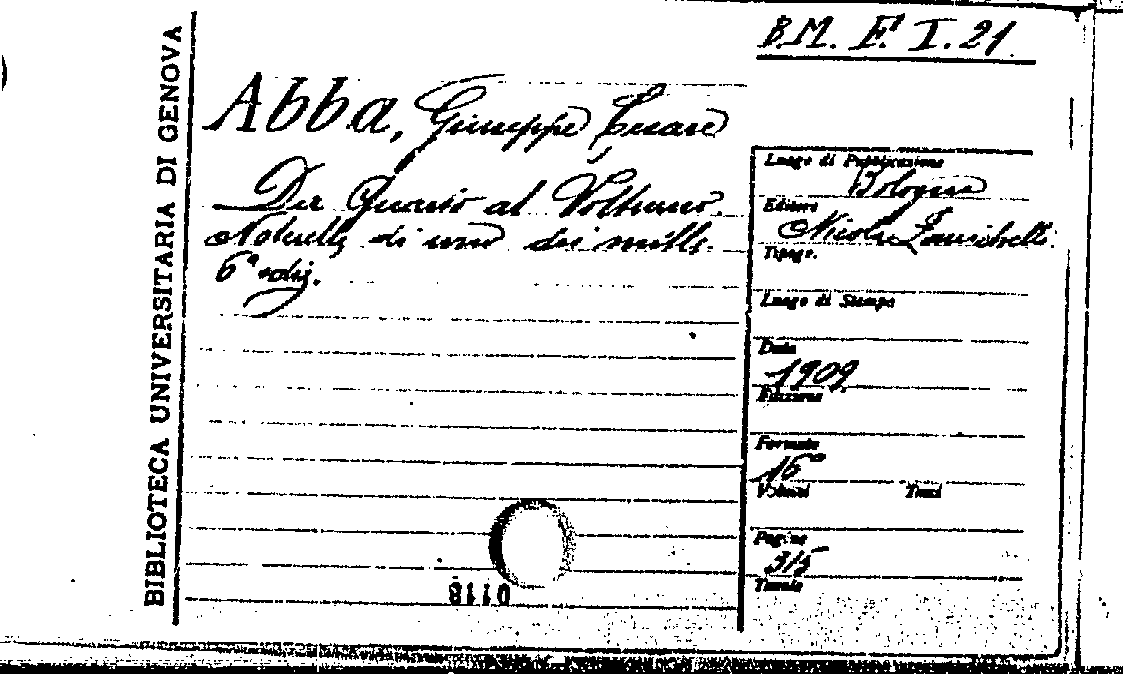 B.M. F. I. 21
BIBLIOTECA UNIVERSITARIA DI GENOVA
Abba, Giuseppe Cesare
Da Quarto al Volturno.
Noterelle di uno dei mille.
6ª ediz.
Luogo di Pubblicazione
Bologna
Editore
Nicola Zanichelli.
Tipogr.
Luogo di Stampa
Data
1909
Edizione
Formato
16°
Volumi Tomi
Pagine
315
Tavole
0118